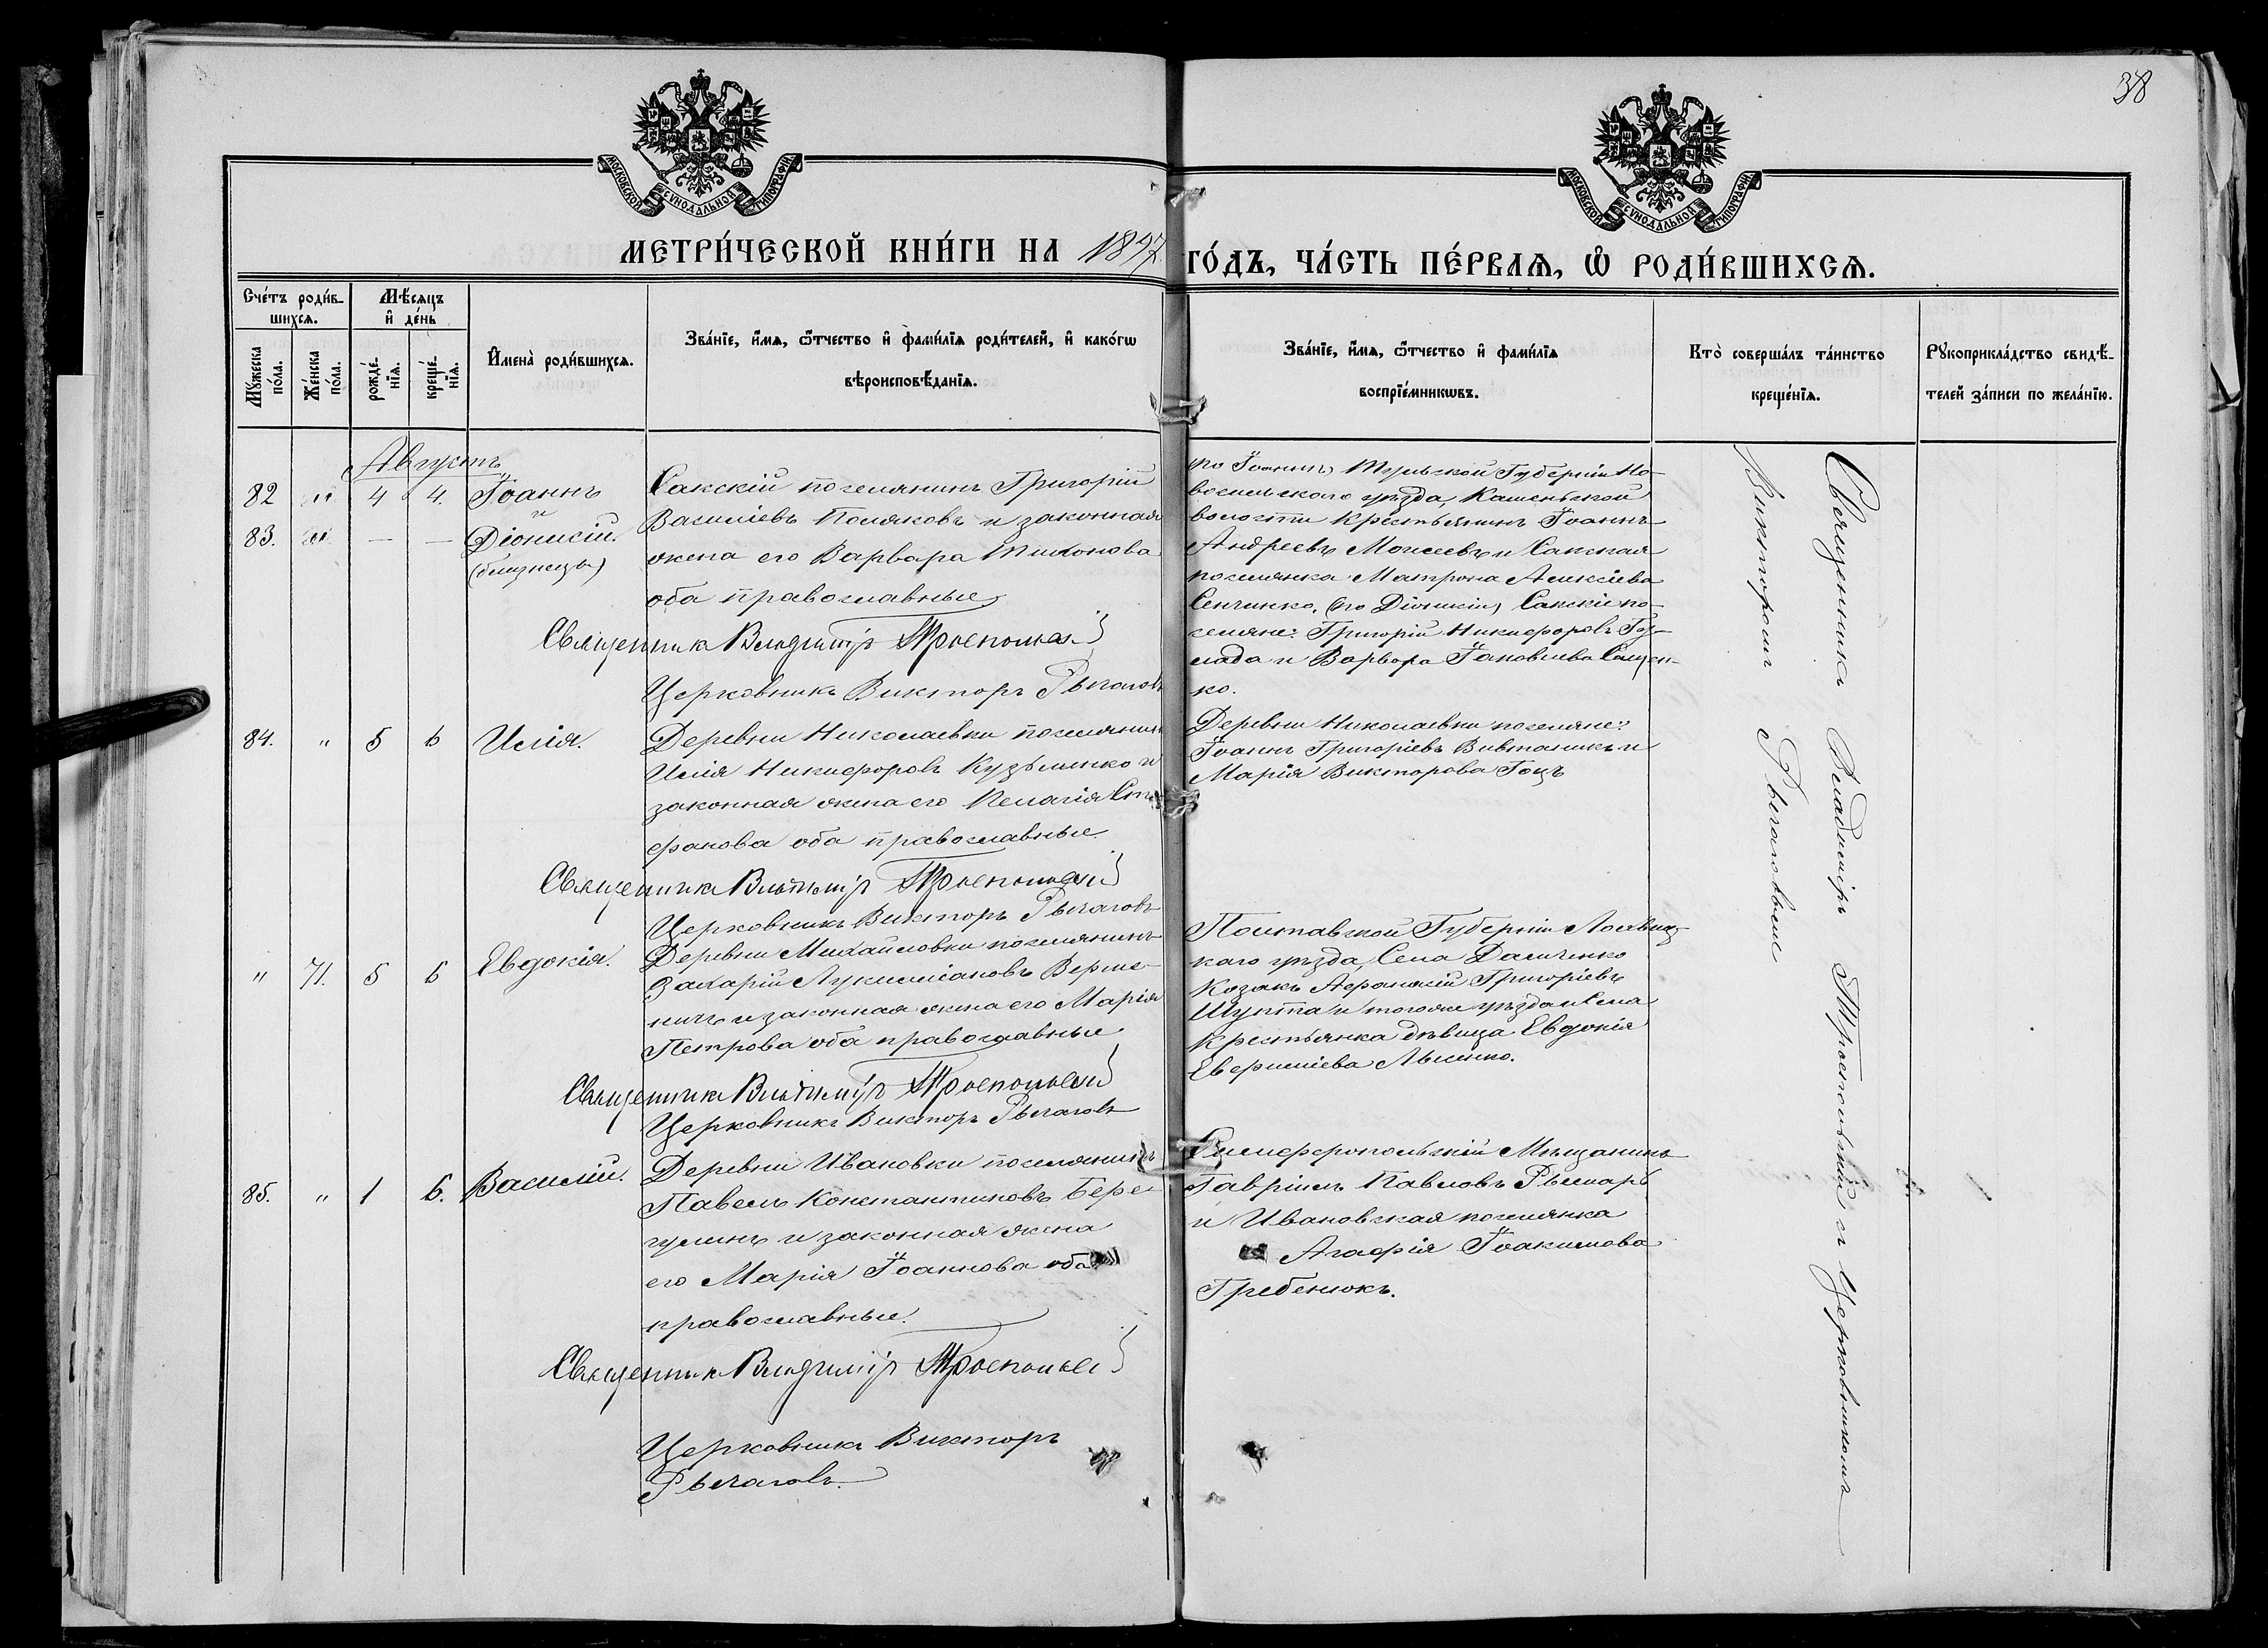 38
МОСКОВСКОЙ СѴНОДАЛЬНОЙ ТИПОГРАФІИ
МОСКОВСКОЙ СѴНОДАЛЬНОЙ ТИПОГРАФІИ
МЕТРИ́ЧЕСКОЙ КНИ́ГИ НА 1897 ГО́ДЪ, ЧА́СТЬ ПЕ́РВАѦ, Ѽ РОДИ́ВШИХСѦ.
Сче́тъ роди́в-
шихсѧ.
Мꙋ́жеска
по́ла.
Же́нска
по́ла.
Мѣ́сѧцъ
и҆ де́нь
рожде́-
нїѧ.
креще́-
нїѧ.
И҆мена̀ роди́вшихсѧ.
Зва́нїе, и҆́мѧ, ѻ҆́тчество и҆ фамѝлїѧ роди́телей, и҆ како́гѡ
вѣроисповѣ́данїѧ.
Зва́нїе, и҆́мѧ, ѻ҆́тчество и҆ фами́лїѧ
воспрїе́мникѡвъ.
Кто̀ соверша́лъ та́инство
креще́нїѧ.
Рꙋкоприкла́дство свидѣ́-
телей за́писи по жела́нїю.
Августъ
82 " 4 4. Іоаннъ
и
83. " — — Діонисій.
(близнецы)
Сакскій поселянинъ Григорій
Василіевъ Поляковъ и законная
жена его Варвара Тихонова
оба православные
Священникъ Владиміръ Тростолькій
Церковникъ Викторъ Рычаговъ
по Іоаннѣ, Тульской Губерніи Но-
восильскаго уѣзда, Каменьской
волости Крестьянинъ Іоаннъ
Андреевъ Моисеевъ и Сакская
поселянка Матрона Алексіева
Сенченко, (по Діонисіи) Сакскіе по-
селяне: Григорій Никифоровъ Гу-
лада и Варвара Іаковлева Сащен-
ко.
84. " 5 6 Илія.
Деревни Николаевки поселянинъ
Илія Никифоровъ Кузьменко и
законная жена его Пелагія Сте-
фанова оба православные.
Священникъ Владиміръ
Церковникъ Викторъ Рычаговъ
Деревни Николаевки поселяне:
Іоаннъ Григоріевъ Вивтаникъ и
Марія Викторова Гоцъ
" 71. 5 6 Евдокія.
Деревни Михайловки поселянинъ
Захарій Лукилліановъ Верме-
ничъ и законная жена его Марія
Петрова оба православные
Священникъ Владиміръ
Церковникъ Викторъ Рычаговъ
Полтавской Губерніи Лохвиц-
каго уѣзда, Села
Козакъ Афанасій Григоріевъ
Шупта и тогоже уѣзда и села
крестьянка дѣвица Евдокія
Лысенко.
85. " 1 6. Василій.
Деревни Ивановки поселянинъ
Павелъ Константиновъ Бере-
гулинъ и законная жена
его Марія Іоаннова оба
православные.
Священникъ Владиміръ
Церковникъ Викторъ
Рычаговъ.
Симферопольскій Мѣщанинъ
Гавріилъ Павловъ Рымарь
и Ивановская поселянка
Агафія Іоакимова
Гребенюкъ.
Священникъ Владиміръ и Церковникомъ
Викторомъ Рычаговымъ